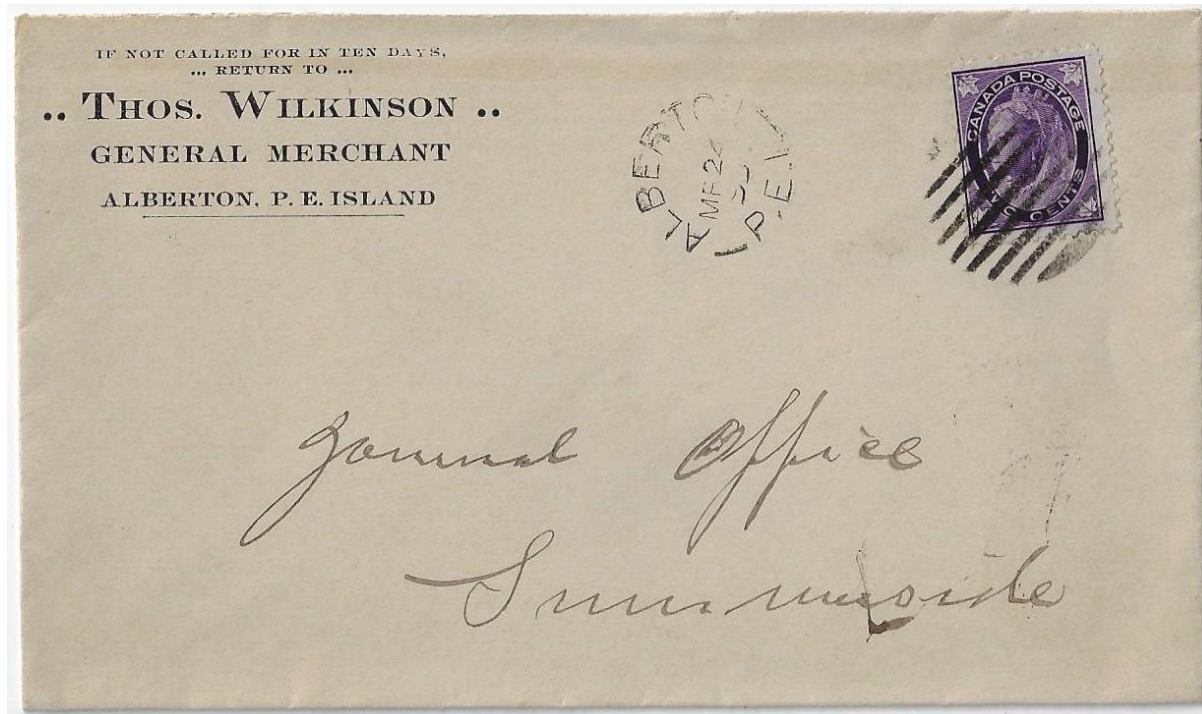 IF NOT CALLED FOR IN TEN DAYS,
... RETURN TO ...
.. THOS. WILKINSON ..
GENERAL MERCHANT
ALBERTON, P. E. ISLAND
ALBERTON
MR 24
P.E.I
CANADA POSTAGE
TWO CENTS
Journal Office
Summerside